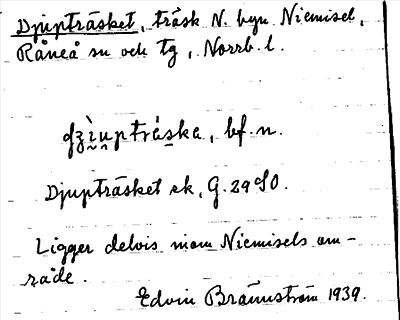 Djupträsket, träsk N. byn Niemisel,
Råneå sn och tg, Norrb. l.
dzi̯u̯pträ̀ska, bf. n.
Djupträsket ek, G. 29 SO.
Ligger delvis inom Niemisels om-
råde.
Edvin Brännström 1939.